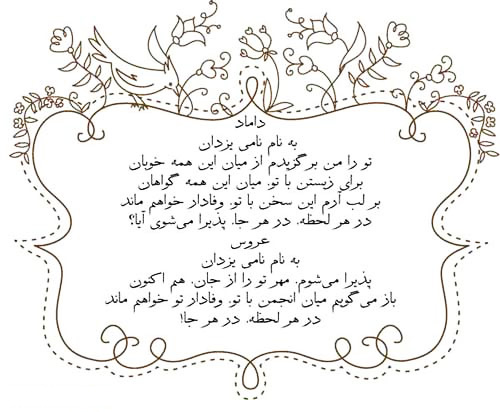 داماد
به نام نامی یزدان
تو را من برگزیدم از میان این همه خوبان
برای زیستن با تو. میان این همه گواهان
بر لب آرم این سخن با تو. وفادار خواهم ماند
در هر لحظه. در هر جا. پذیرا می‌شوی آیا؟
عروس
به نام نامی یزدان
پذیرا می‌شوم. مهر تو را از جان. هم اکنون
باز می‌گوییم میان انجمن با تو. وفادار تو خواهم ماند
در هر لحظه. در هر جا!